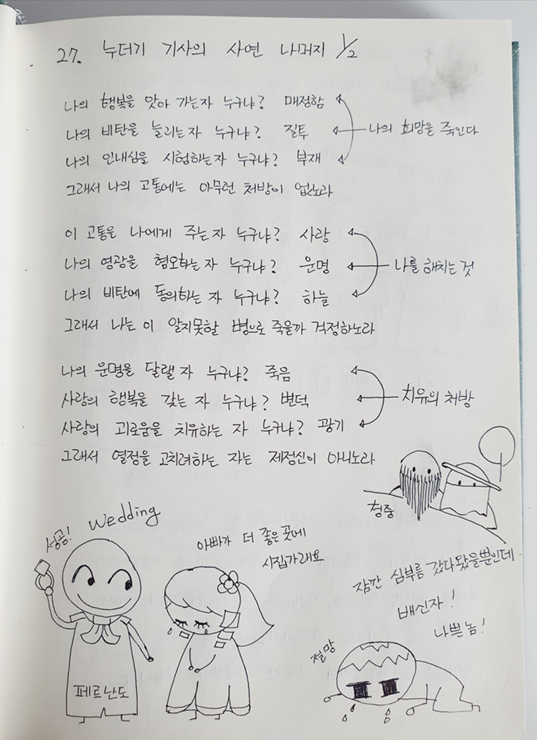 27. 누더기 기사의 사연 나머지 1/2
나의 행복을 앗아 가는자 누구냐? 매정함
나의 비탄을 늘리는자 누구냐? 질투
나의 희망을 죽인다
나의 인내심을 시험하는자 누구냐? 부재
그래서 나의 고통에는 아무런 처방이 없노라
이 고통을 나에게 주는자 누구냐? 사랑
나의 영광을 혐오하는 자 누구냐? 운명
나를 해치는 것
나의 비탄에 동의하는 자 누구냐? 하늘
그래서 나는 이 알지못할 병으로 죽을까 걱정하노라
나의 운명을 달랠 자 누구냐? 죽음
사랑의 행복을 갖는 자 누구냐? 변덕
치유의 처방
사랑의 괴로움을 치유하는 자 누구냐? 광기
그래서 열정을 고치려하는 자는 제정신이 아니노라
청중
성공! Wedding
아빠가 더 좋은곳에
시집가래요
잠깐 심부름 갔다왔을뿐인데
배신자!
나쁜놈!
절망
페르난도